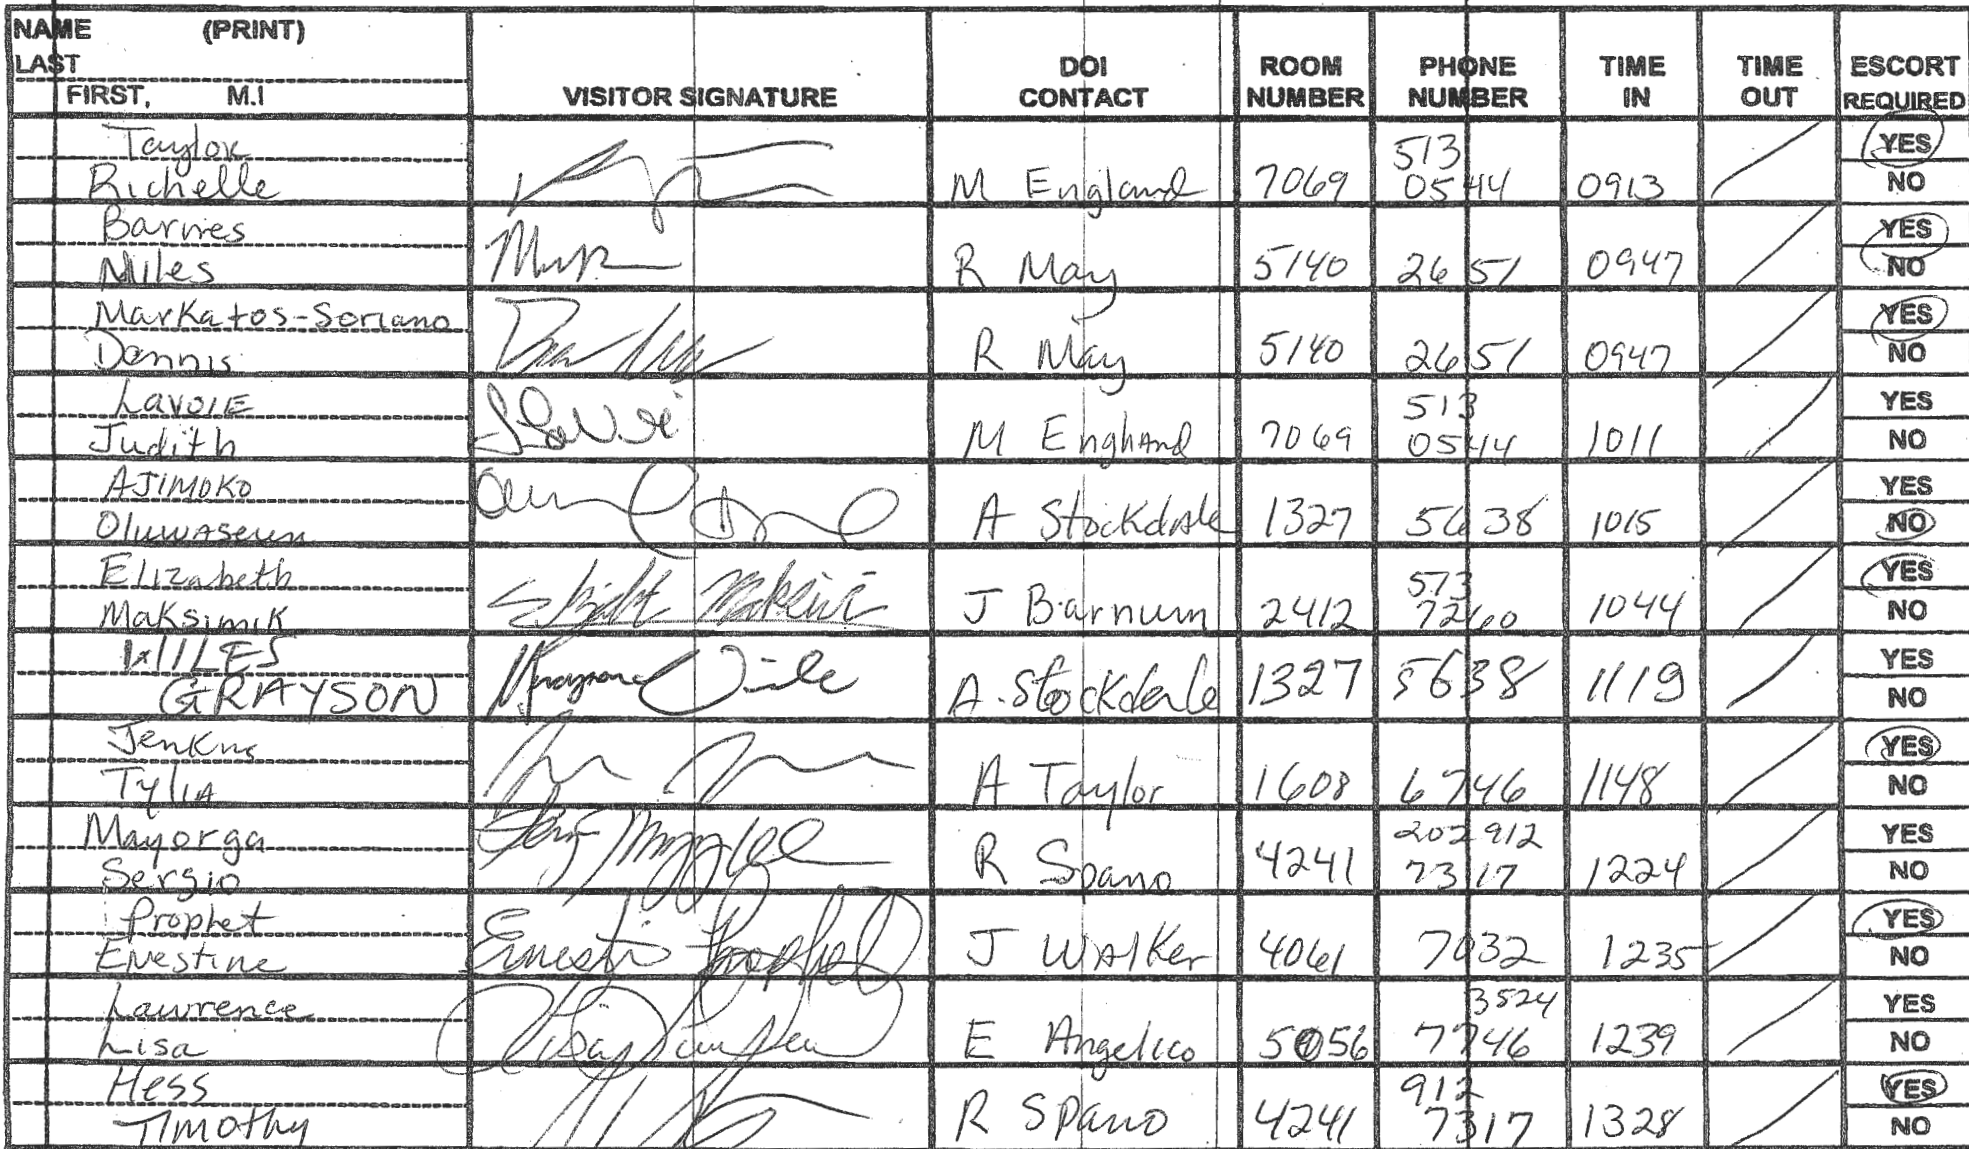 NAME (PRINT)
LAST
FIRST, M.I
VISITOR SIGNATURE
DOI CONTACT
ROOM NUMBER
PHONE NUMBER
TIME IN
TIME OUT
ESCORT REQUIRED
Taylor
Richelle M England 7069 513 0544 0913 YES NO
Barnes
Miles R May 5140 2651 0947 YES NO
Markatos-Soriano
Dennis R May 5140 2651 0947 YES NO
Lavoie
Judith M England 7069 513 0544 1011 YES NO
AJIMOKO
Oluwaseun A Stockdale 1327 5638 1015 YES NO
Elizabeth
Maksimik J Barnum 2412 573 7260 1044 YES NO
WILES
GRAYSON A. Stockdale 1327 5638 1119 YES NO
Jenkins
Tylia A Taylor 1608 6746 1148 YES NO
Mayorga
Sergio R Spano 4241 202 912 7317 1224 YES NO
Prophet
Ernestine Ernestine Prophet J Walker 4061 7032 1235 YES NO
Lawrence
Lisa E Angelico 5056 3524 7746 1239 YES NO
Hess
Timothy R Spano 4241 912 7317 1328 YES NO